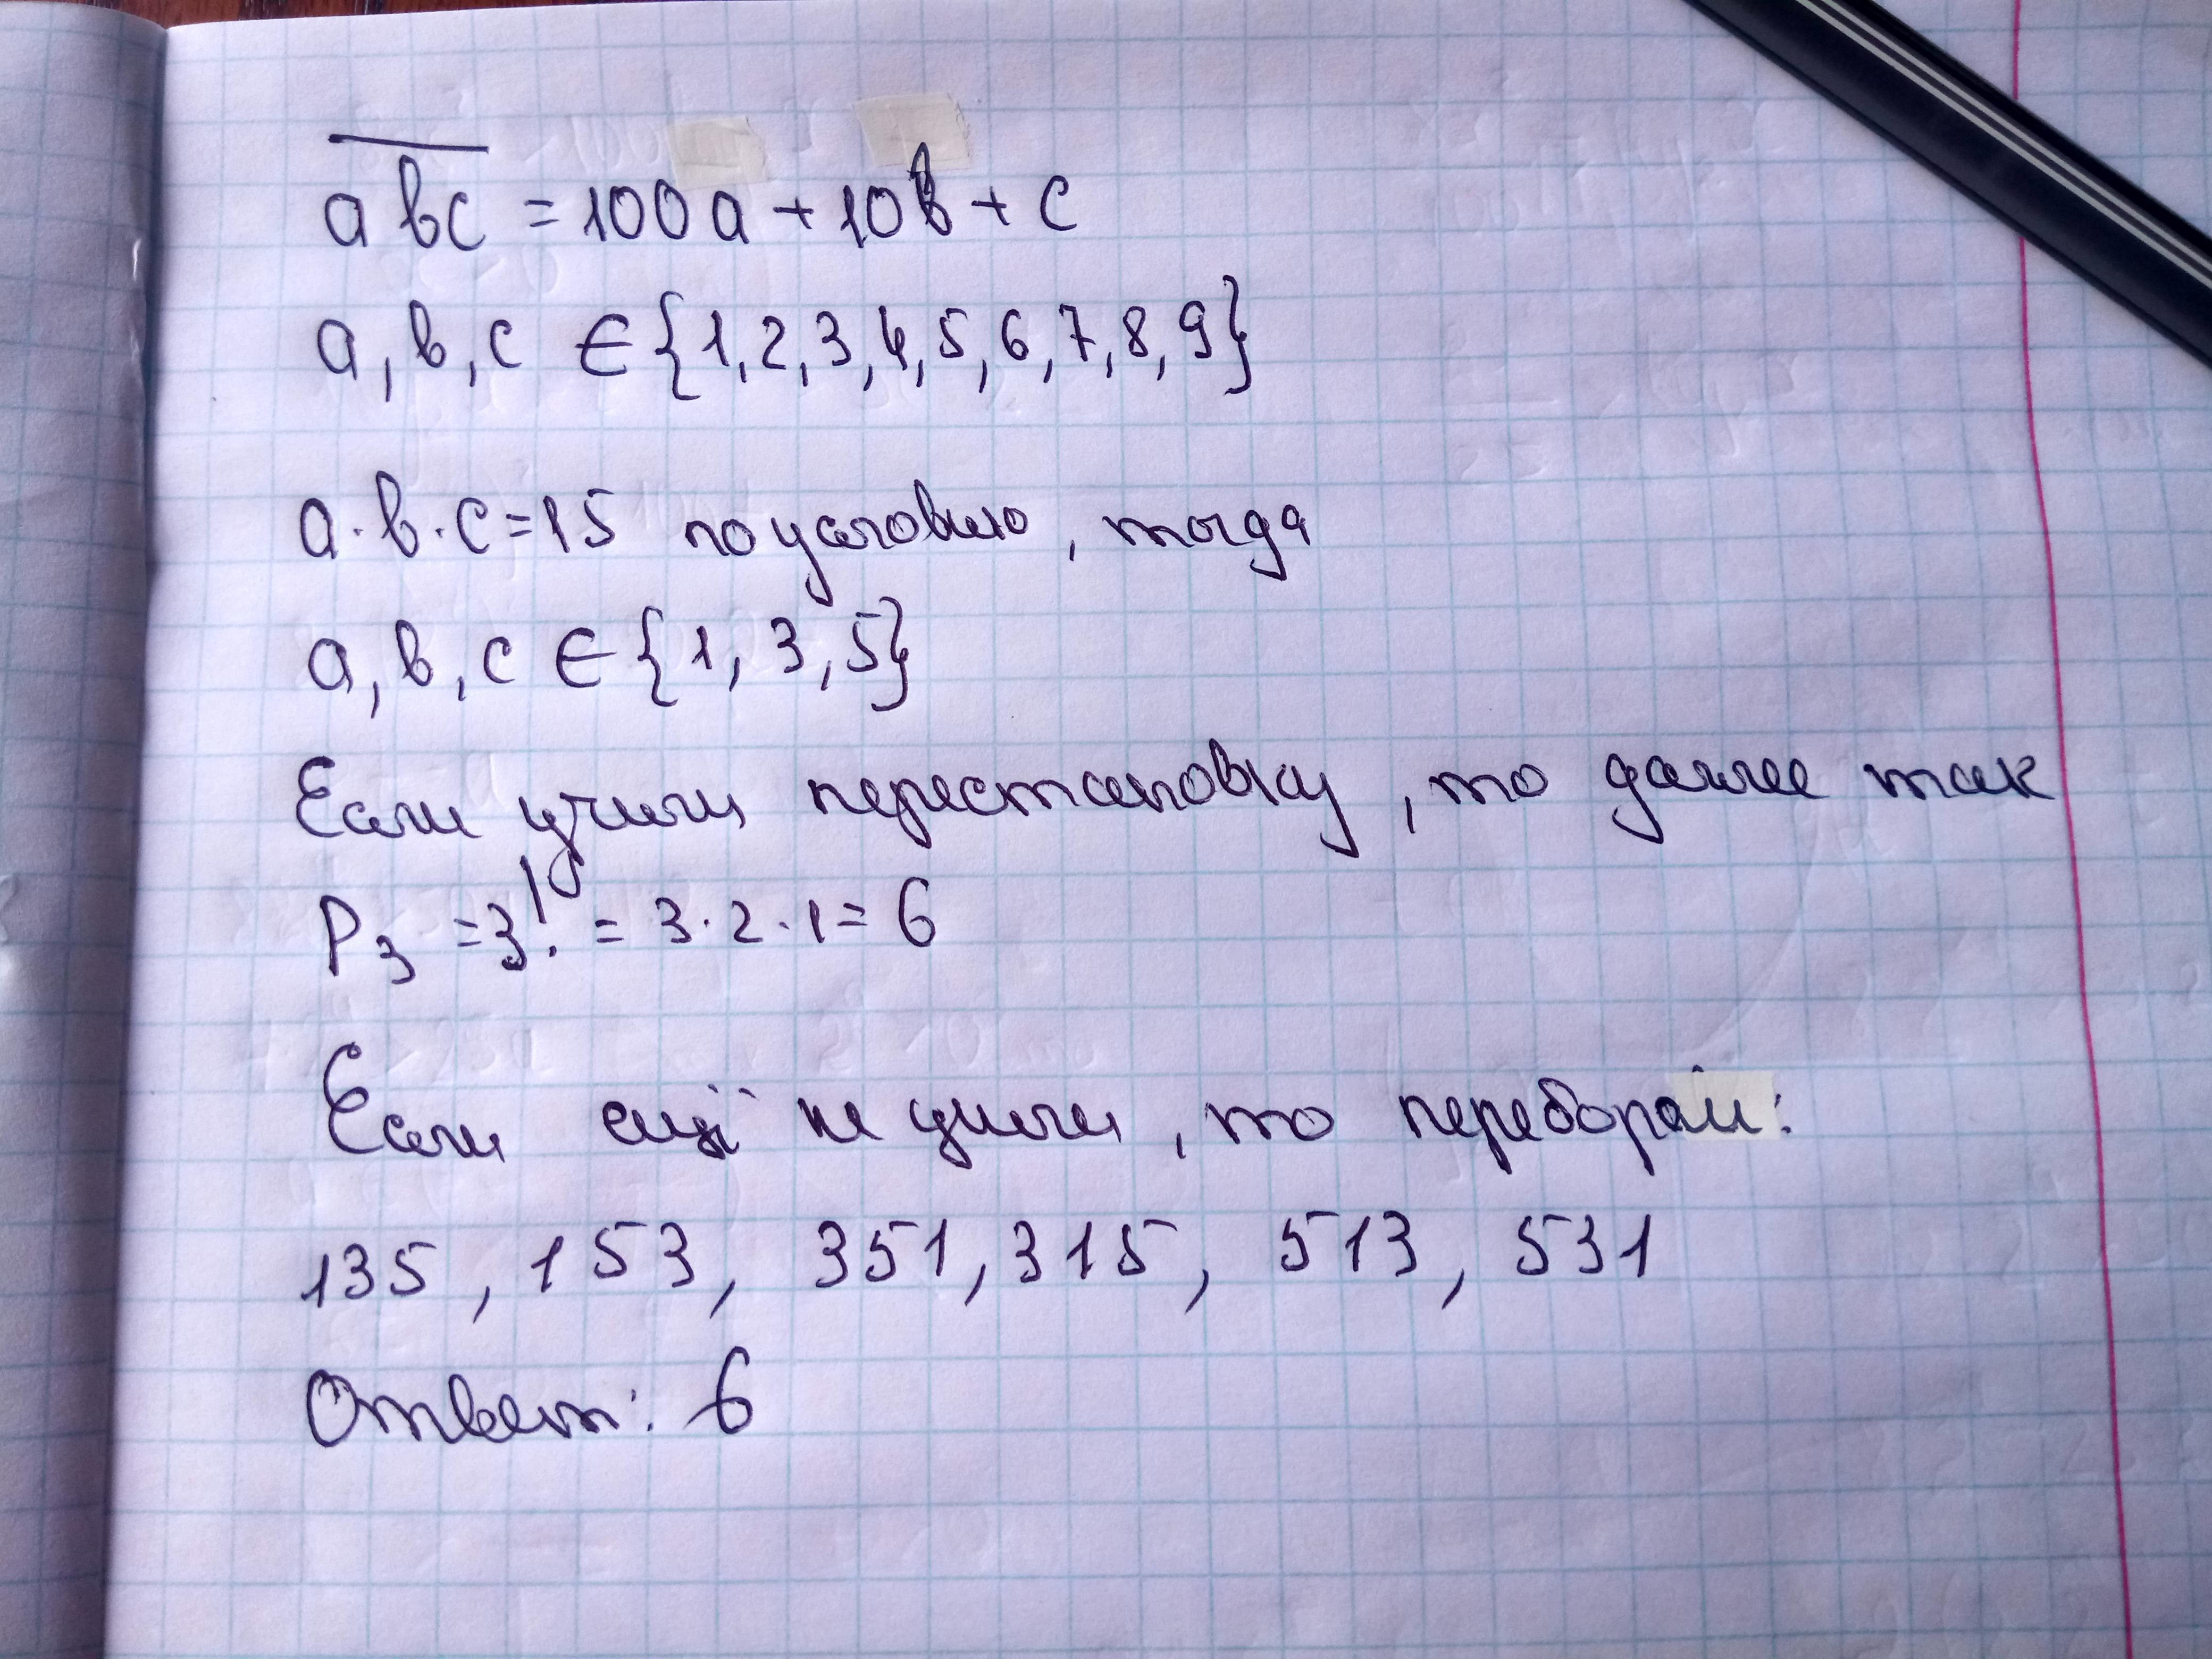 авс = 100а + 10в + с
а, в, с ∈ {1, 2, 3, 4, 5, 6, 7, 8, 9}
а · в · с = 15 по условию, тогда
а, в, с ∈ {1, 3, 5}
Если учили перестановку, то далее так
P₃ = 3! = 3 · 2 · 1 = 6
Если ещё не учили, то перебором:
135, 153, 351, 315, 513, 531
Ответ: 6